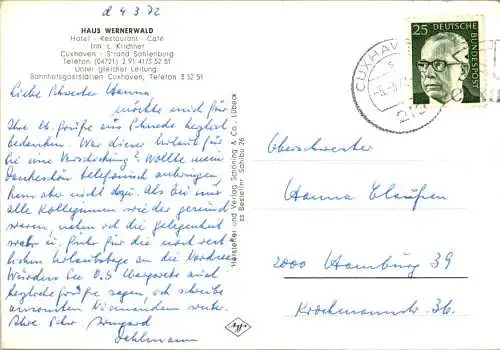 d 4 3. 72
HAUS WERNERWALD
Hotel - Restaurant - Café
Inh. L. Kirchner
Cuxhaven - Strand Sahlenburg
Telefon (04721) 2 91 41/3 52 51
Unter gleicher Leitung:
Bahnhofsgaststätten Cuxhaven, Telefon 3 52 51
Liebe Schwester Hanna
möchte mich für
Ihre lb. Grüße aus herzlichst
bedanken. War dieser Urlaub für
Sie eine Verschickung? Wollte mein
Dankeschön telefonisch anbringen,
kam aber nicht dazu. Als Sie und
alle Kolleginnen wieder gesund
waren, nahm ich die Gelegenheit
wahr u. für die noch rest-
lichen Urlaubstage an die Nordsee.
Würden Sie O.S Margarete auch
herzliche Grüße sagen, ich schreibe
ansonsten Niemandem weiter.
Ihre Schw. Irmgard
Dahlmann
Hersteller und Verlag Schöning & Co., Lübeck
zu Bestellnr. Sahlbg 26
Agfa
CUXHAV
25
DEUTSCHE BUNDESPOST
Oberschwester
Hanna Claußen
2000 Hamburg 39
Krochmannstr. 36.